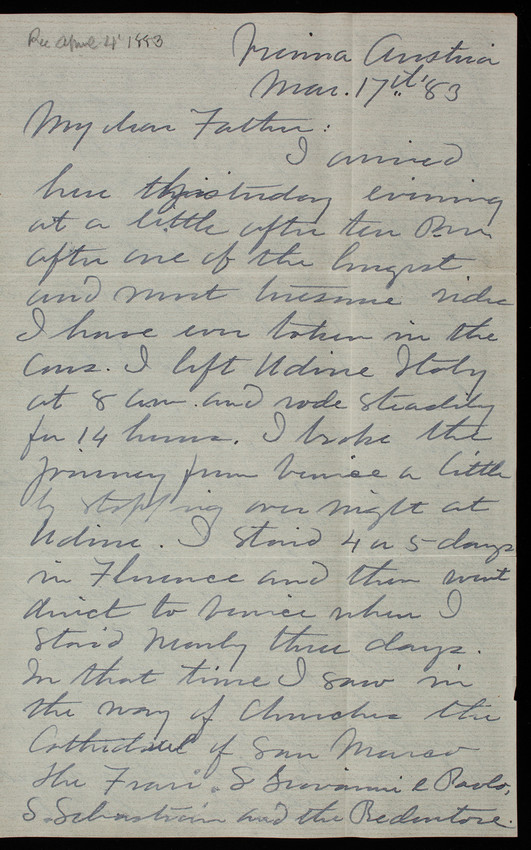 Rec April 4' 1883
Vienna Austria
Mar. 17th '83
My dear Father:
I arrived
here yesterday evening
at a little after ten P.M.
after one of the longest
and most tiresome rides
I have ever taken in the
cars. I left Udine Italy
at 8 a.m. and rode steadily
for 14 hours. I broke the
journey from Venice a little
by stopping over night at
Udine. I staid 4 or 5 days
in Florence and then went
direct to Venice where I
staid nearly three days.
In that time I saw in
the way of churches the
Cathedral of San Marco
the Frari, S Giovanni e Paolo,
S. Sebastian and the Redentore.